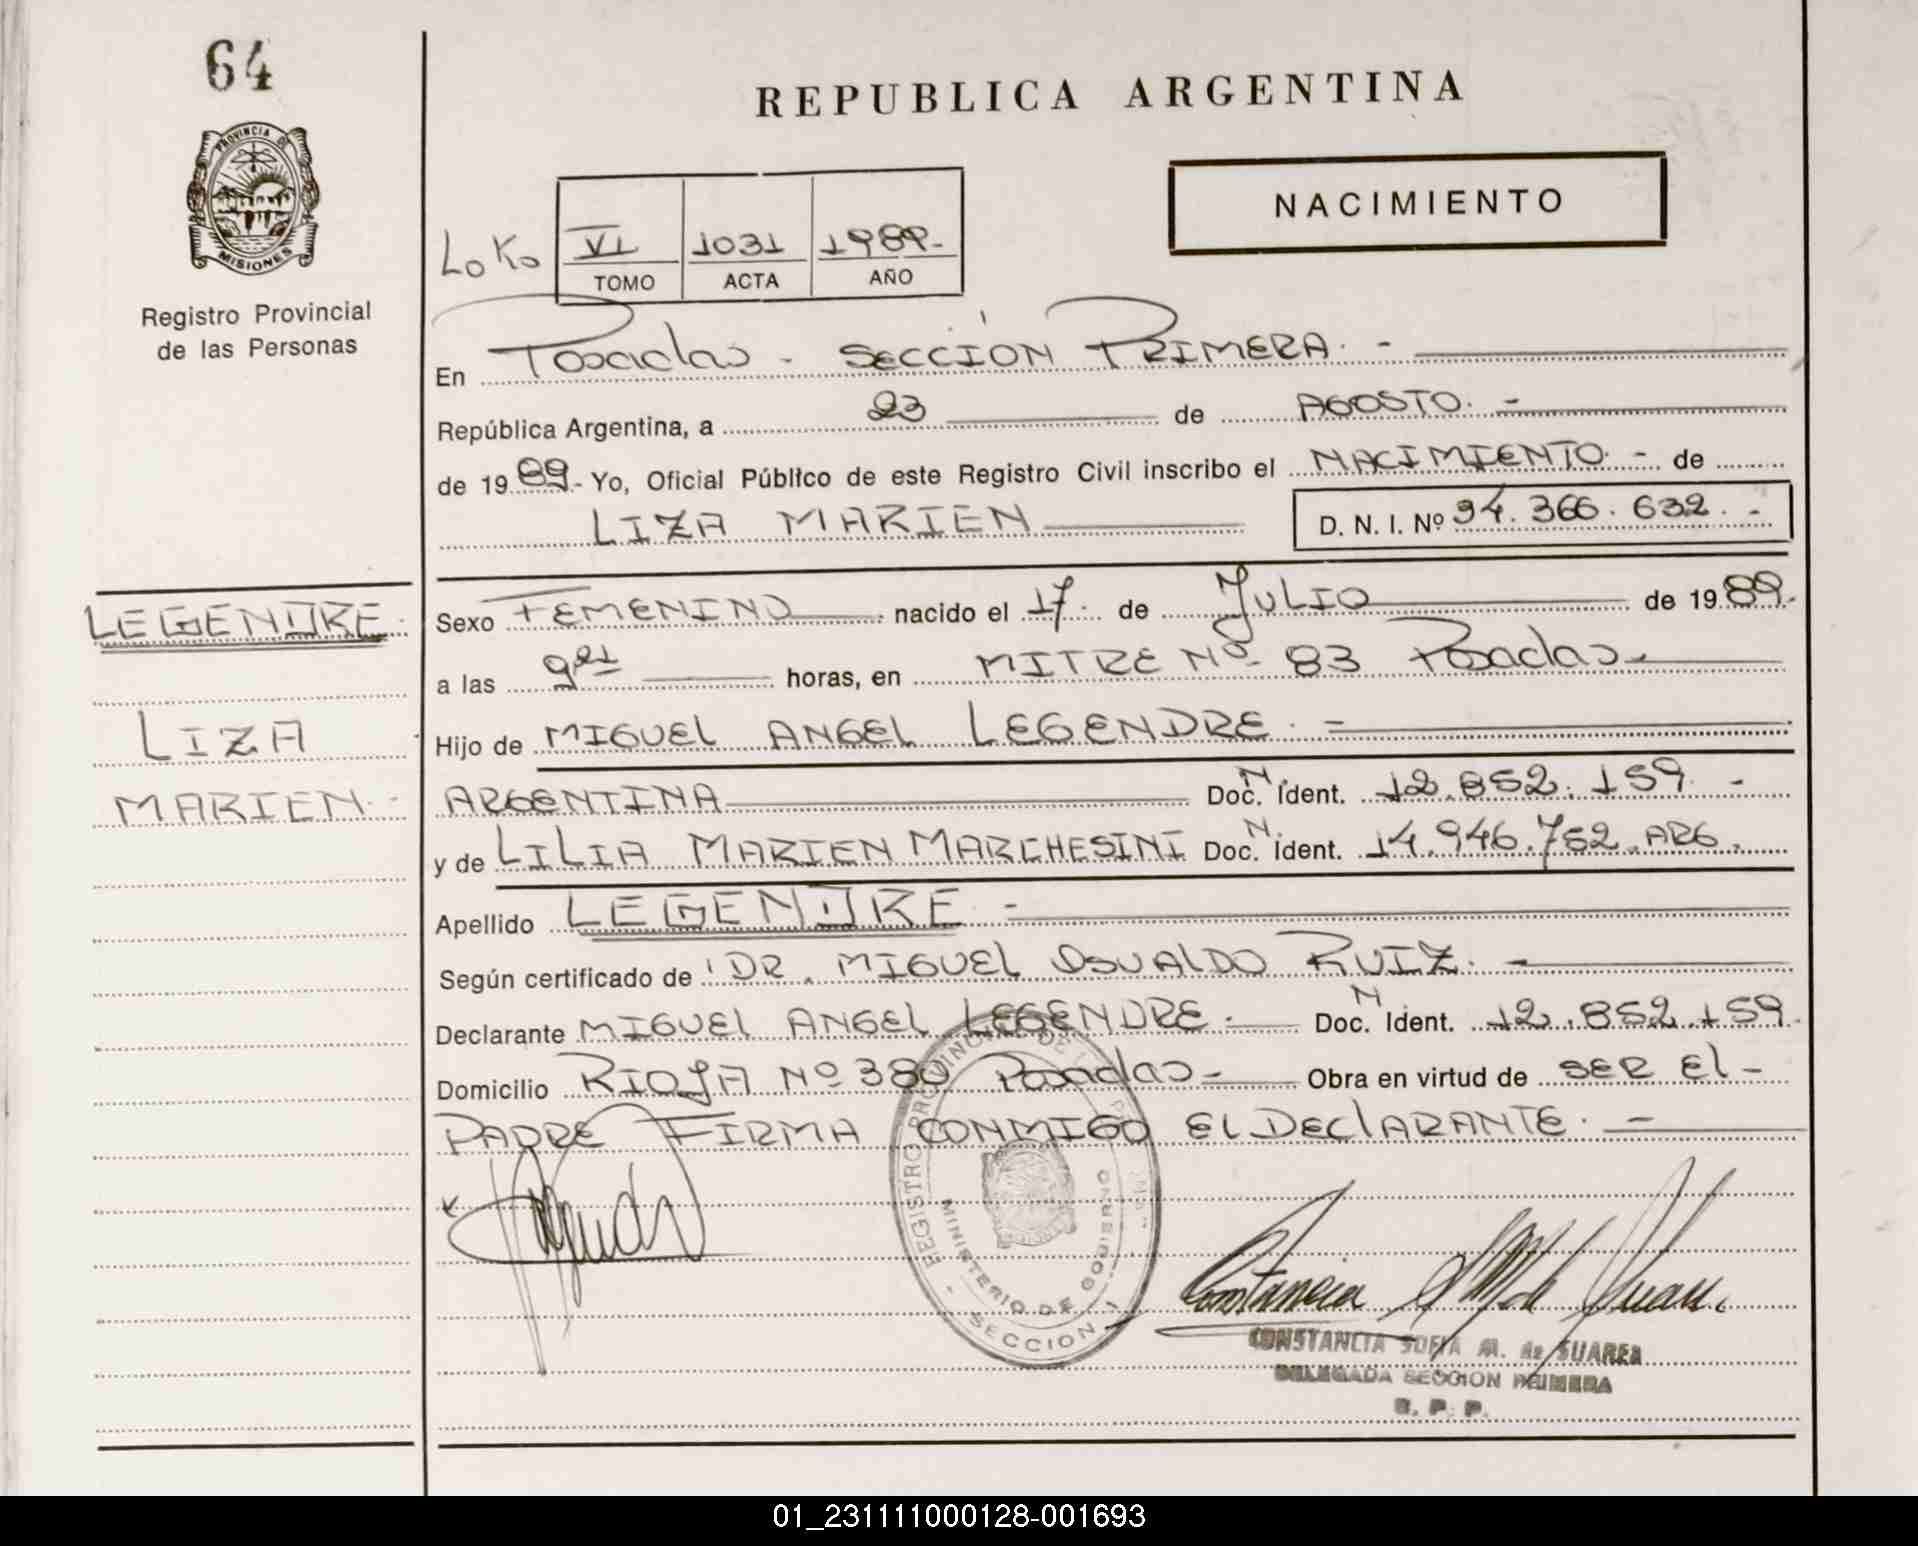 64
PROVINCIA DE
MISIONES
Registro Provincial
de las Personas
REPUBLICA ARGENTINA
NACIMIENTO
LoKo
VI 1031 1989.-
TOMO ACTA AÑO
En Posadas - SECCIÓN PRIMERA. -
República Argentina, a 23 de AGOSTO. -
de 1989.- Yo, Oficial Público de este Registro Civil inscribo el NACIMIENTO. - de
LIZA MARIEN D. N. I. Nº 34.366.632. -
LEGENDRE.
LIZA
MARIEN. -
Sexo FEMENINO nacido el 17. de JULIO de 1989.-
a las horas, en MITRE Nº 83 Posadas.-
Hijo de MIGUEL ANGEL LEGENDRE. -
ARGENTINA Doc. N. Ident. 12.852.159. -
y de LILIA MARIEN MARCHESINI Doc. N. Ident. 14.946.762. ARG.
Apellido LEGENDRE. -
Según certificado de DR. MIGUEL OSVALDO RUIZ. -
Declarante MIGUEL ANGEL LEGENDRE. - Doc. N Ident. 12.852.159.
Domicilio RIOJA Nº 380 Posadas.- Obra en virtud de SER El -
PADRE FIRMA CONMIGO El DEClARANTE. -
REGISTRO PROVINCIAL DE
MINISTERIO DE GOBIERNO
- SECCION 1
Constancia
CONSTANCIA SOFIA M. de SUAREZ
DELEGADA SECCION PRIMERA
R. P. P.
01_231111000128-001693